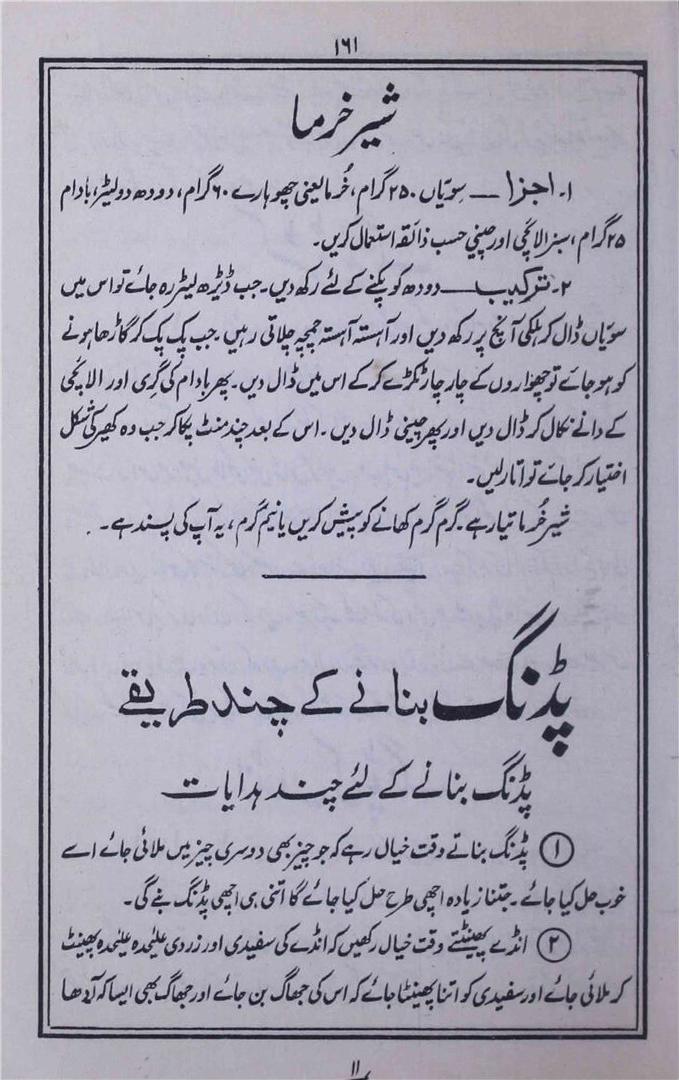 ۱۶۱
شیر خرما
۱۔ اجزا — سویّاں ۲۵۰ گرام، خُرما یعنی چھوہارے ۶۰ گرام، دودھ دو لیٹر، بادام
۲۵ گرام، سبز الائچی اور چینی حسب ذائقہ استعمال کریں۔
۲۔ ترکیب — دودھ کو پکنے کے لئے رکھ دیں۔ جب ڈیڑھ لیٹر رہ جائے تو اس میں
سویّاں ڈال کر ہلکی آنچ پر رکھ دیں اور آہستہ آہستہ چمچہ چلاتی رہیں۔ جب پک پک کر گاڑھا ہونے
کو ہو جائے تو چھواروں کے چار چار ٹکڑے کر کے اس میں ڈال دیں۔ پھر بادام کی گری اور الائچی
کے دانے نکال کر ڈال دیں اور پھر چینی ڈال دیں۔ اس کے بعد چند منٹ پکا کر جب وہ کھیر کی شکل
اختیار کر جائے تو اتار لیں۔
شیر خُرما تیار ہے۔ گرم گرم کھانے کو پیش کریں یا نیم گرم، یہ آپ کی پسند ہے۔
پڈنگ بنانے کے چند طریقے
پڈنگ بنانے کے لئے چند ہدایات
۱ پڈنگ بناتے وقت خیال رہے کہ جو چیز بھی دوسری چیز میں ملائی جائے اسے
خوب حل کیا جائے۔ جتنا زیادہ اچھی طرح حل کیا جائے گا اتنی ہی اچھی پڈنگ بنے گی۔
۲ انڈے پھینٹتے وقت خیال رکھیں کہ انڈے کی سفیدی اور زردی علیٰحدہ علیٰحدہ پھینٹ
کر ملائی جائے اور سفیدی کو اتنا پھینٹا جائے کہ اس کی جھاگ بن جائے اور جھاگ بھی ایسا کہ آدھا
۱۱